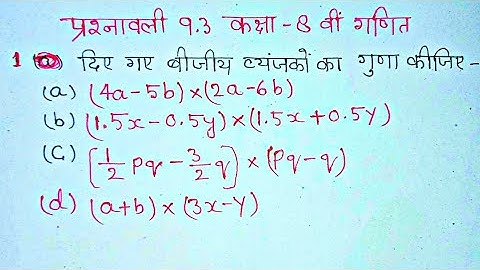 प्रश्नावली 9.3 कक्षा-8 वीं गणित
1 दिए गए बीजीय व्यंजकों का गुणा कीजिए-
(a) (4a-5b)×(2a-6b)
(b) (1.5x-0.5y)×(1.5x+0.5y)
(C) [1/2 pq - 3/2 q] × (pq-q)
(d) (a+b)×(3x-y)